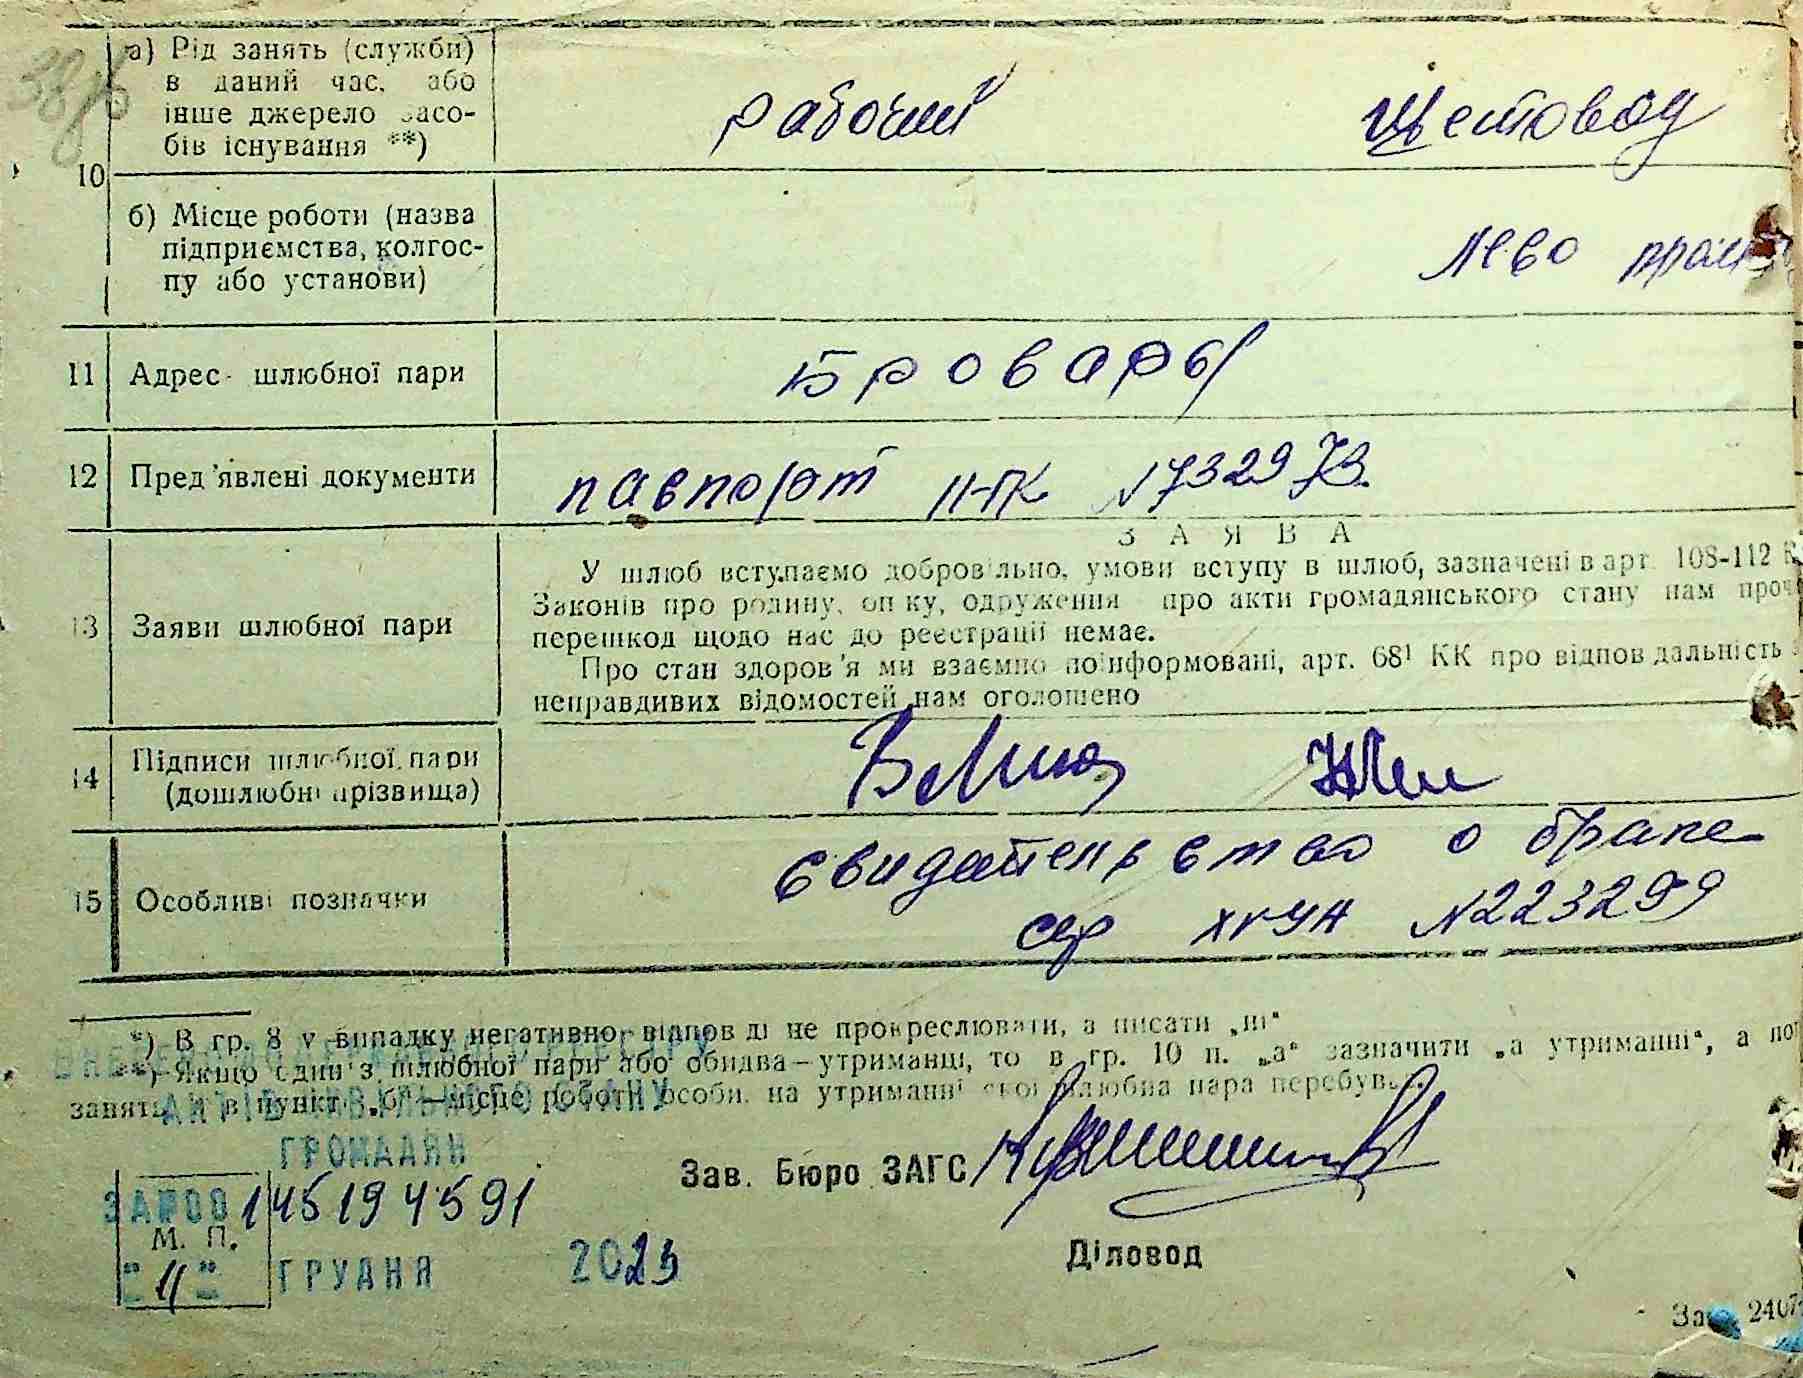 а) Рід занять (служби)
в даний час, або
інше джерело засо-
бів існування **)
рабочий
Щетовод
10
б) Місце роботи (назва
підприємства, колгос-
пу або установи)
Лево пром
11 Адрес шлюбної пари
Бровары
12 Пред'явлені документи
паспорт II-ПК №732973.
ЗАЯВА
У шлюб вступаємо добровільно, умови вступу в шлюб, зазначені в арт. 108-112 К
Законів про родину, опіку, одруження про акти громадянського стану нам проч
13 Заяви шлюбної пари
перешкод щодо нас до реєстрації немає.
Про стан здоров'я ми взаємно поінформовані, арт. 68¹ КК про відповідальність з
неправдивих відомостей нам оголошено
14 Підписи шлюбної пари
(дошлюбні прізвища)
15 Особливі позначки
свидетельство о браке
сер №223299
*) В гр. 8 у випадку негативної відповіді не прокреслювати, а писати „ні"
**) Якщо один з шлюбної пари або обидва—утриманці, то в гр. 10 п. „а" зазначити „а утриманні", а пот
занять, і в пункті „б"—місце роботи особи, на утриманні якої шлюбна пара перебуває.
ВНЕСЕНО ДО ДЕРЖАВНОГО РЕЄСТРУ
АКТІВ ЦИВІЛЬНОГО СТАНУ
ГРОМАДЯН
Зав. Бюро ЗАГС
ЗА №00145194591
М. П.
"11" ГРУДНЯ 2023
Діловод
Зак. 2407